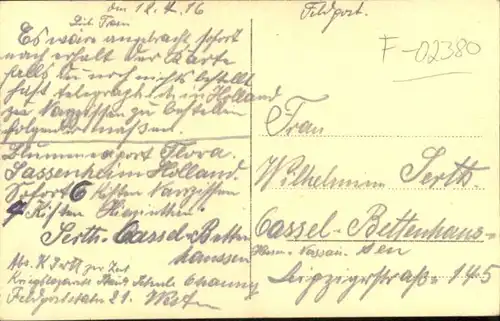 den 12.4.16
Lib. Frau
Es wäre angebracht sofort
nach erhalt der Karte
falls Du noch nichts bestellt
hast telegraphisch in Holland
zu Narzissen zu bestellen
folgendermaßen.
Blumenexport Flora.
Sassenheim Holland.
Sofort 6 Kisten Narzissen
4 Kisten Hiazinthen
Serth. Cassel-Betten
haussen
Abs. K. Serth zur Zeit
Kriegslazarett Chauny
Feldpoststation 21. Westen
Feldpost.
F-02380
Frau
Wilhelmine Serth.
Cassel-Bettenhaus-
Hessen-Nassau. sen
Leipzigerstraße 145